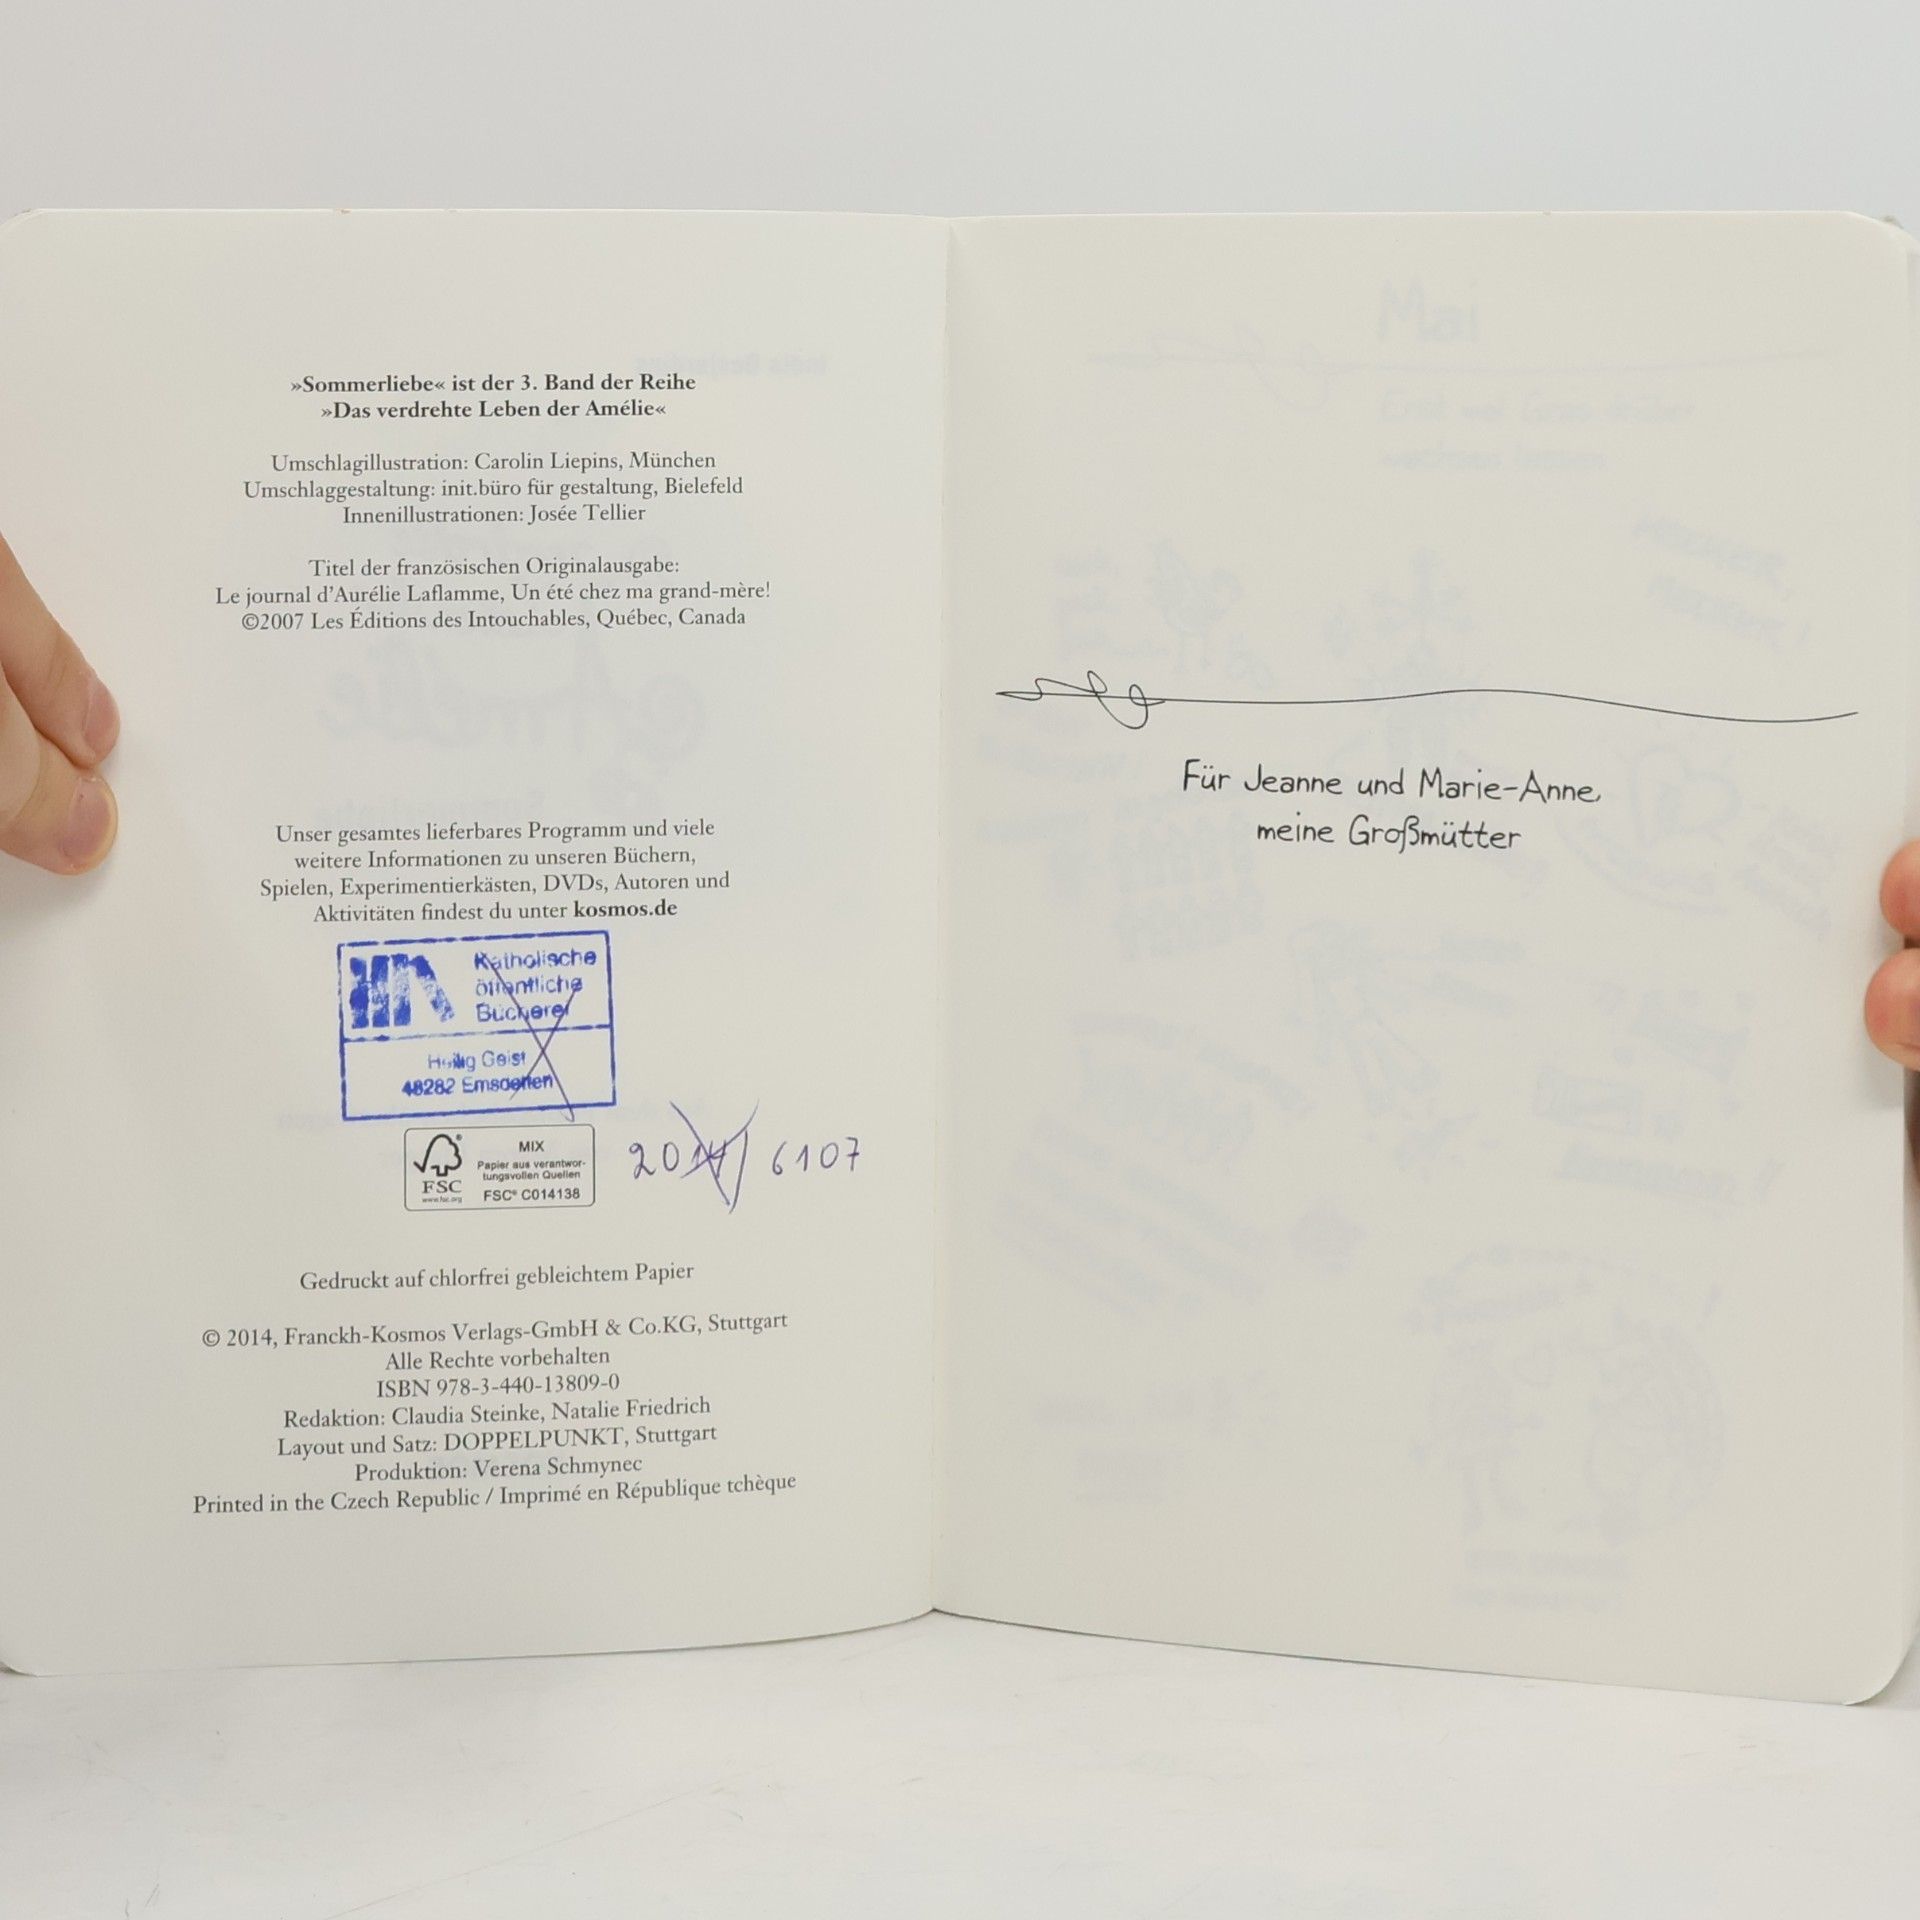 »Sommerliebe« ist der 3. Band der Reihe
»Das verdrehte Leben der Amélie«
Umschlagillustration: Carolin Liepins, München
Umschlaggestaltung: init.büro für gestaltung, Bielefeld
Innenillustrationen: Josée Tellier
Titel der französischen Originalausgabe:
Le journal d'Aurélie Laflamme, Un été chez ma grand-mère!
©2007 Les Éditions des Intouchables, Québec, Canada
Unser gesamtes lieferbares Programm und viele
weitere Informationen zu unseren Büchern,
Spielen, Experimentierkästen, DVDs, Autoren und
Aktivitäten findest du unter kosmos.de
Katholische
öffentliche
Bücherei
Heilig Geist
48282 Emsdetten
FSC®
www.fsc.org
MIX
Papier aus verantwor-
tungsvollen Quellen
FSC® C014138
2014/6107
Gedruckt auf chlorfrei gebleichtem Papier
© 2014, Franckh-Kosmos Verlags-GmbH & Co.KG, Stuttgart
Alle Rechte vorbehalten
ISBN 978-3-440-13809-0
Redaktion: Claudia Steinke, Natalie Friedrich
Layout und Satz: DOPPELPUNKT, Stuttgart
Produktion: Verena Schmynec
Printed in the Czech Republic / Imprimé en République tchèque
Für Jeanne und Marie-Anne,
meine Großmütter